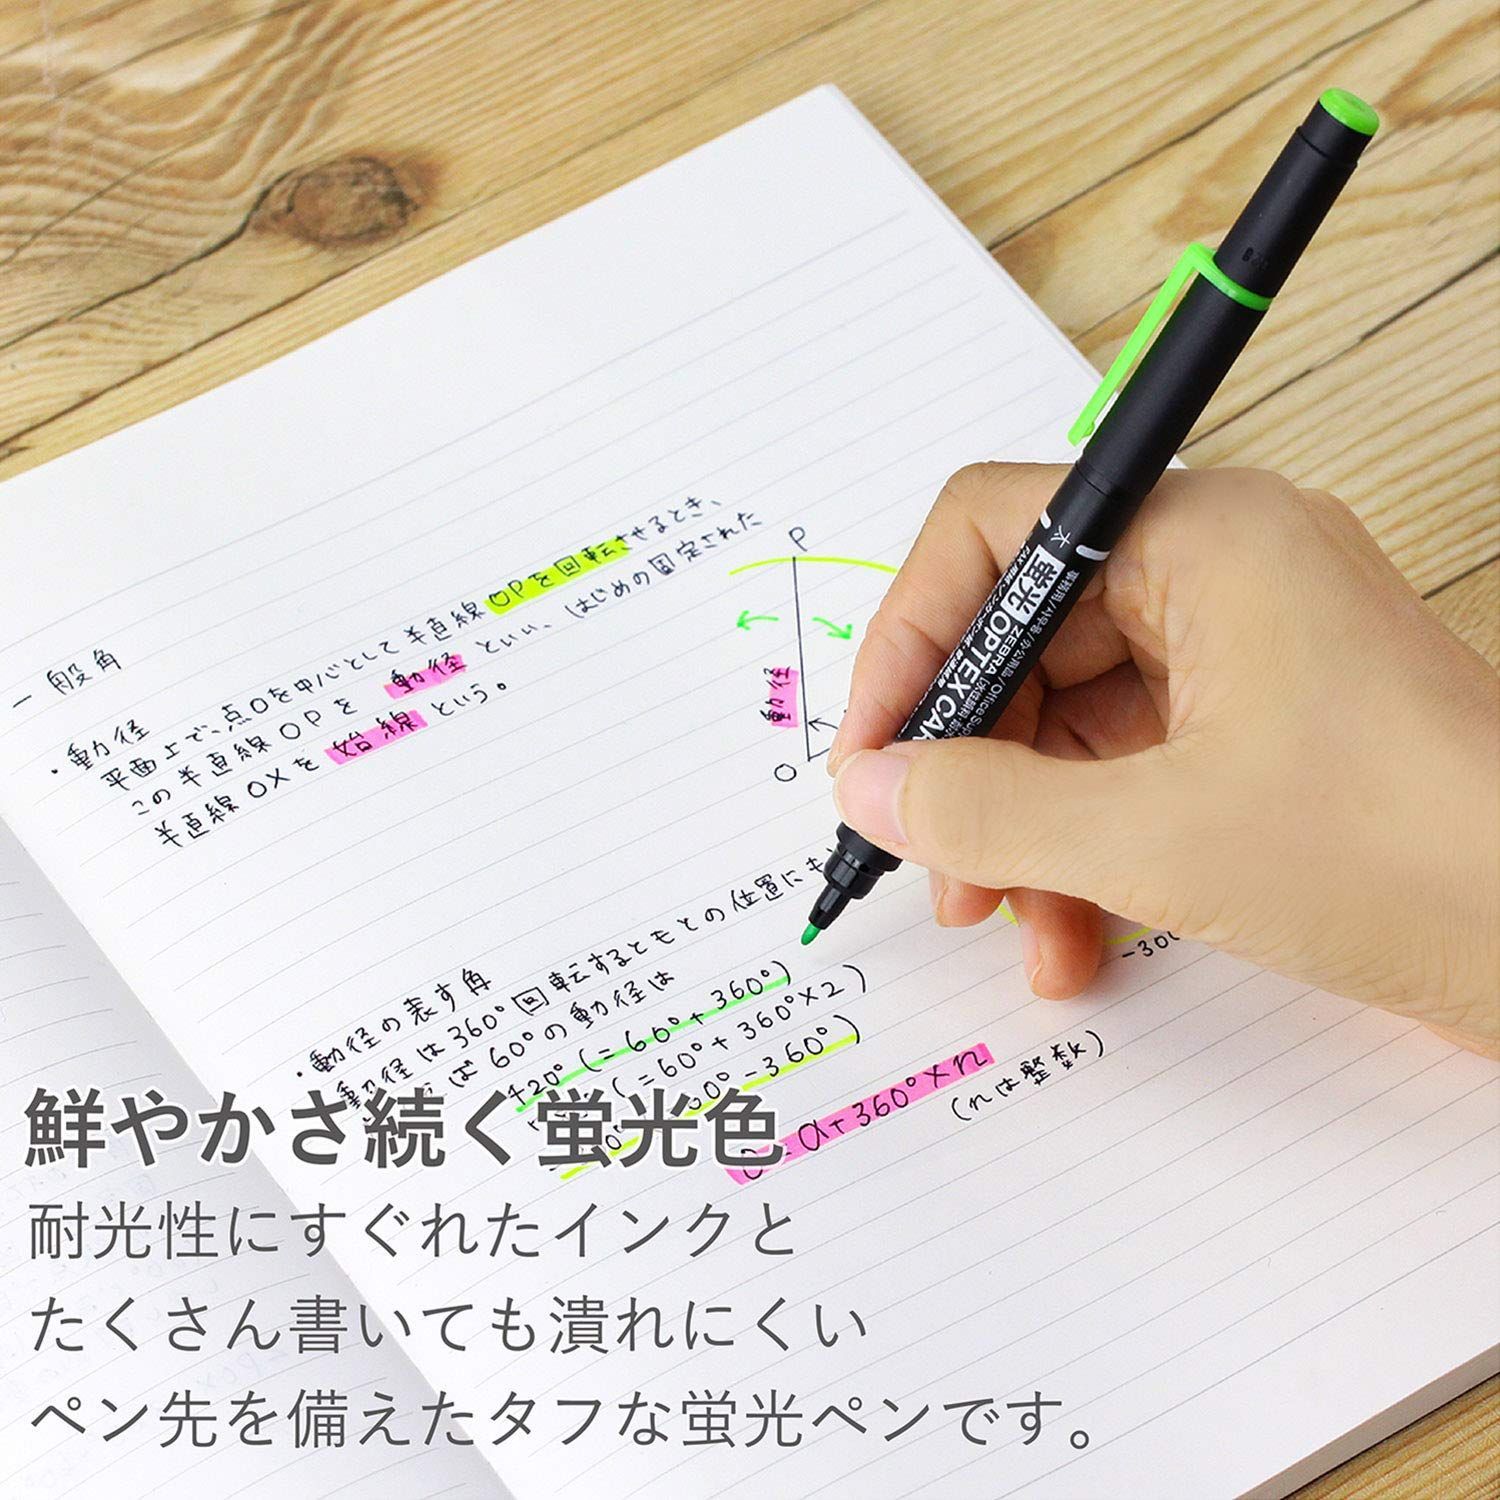 一般角
・動径
平面上で、点Oを中心として半直線OPを回転させるとき、
この半直線OPを 動径 といい、はじめの固定された
半直線OXを 始線 という。
P
動径
O
太
蛍光
ZEBRA
OPTEX CAR
事務用/사무용/办公用品/Office Sup
・動径の表す角
動径は360°回転するともとの位置にも
ば60°の動径は
420°(=60°+360°)
(=60°+360°×2)
0°-360°)
-300
α+360°×n
(nは整数)
鮮やかさ続く蛍光色
耐光性にすぐれたインクと
たくさん書いても潰れにくい
ペン先を備えたタフな蛍光ペンです。